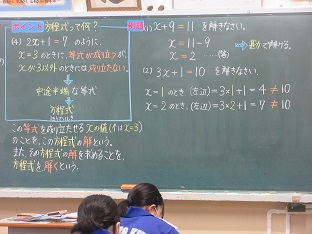 ポイント 方程式って何?
(ｲ) 2x+1=7 のように、
x=3のときに、等式が成り立つが、
xが3以外のときには成り立たない
中途半端な等式
方程式
この等式を成り立たせるxの値(ｲはx=3)
のことを、この方程式の解という。
また、その方程式の解を求めることを、
方程式を解くという。
(1) x+9=11 を解きなさい。
x=11-9
x=2
勘で解ける。
(2) 3x+1=10 を解きなさい。
x=1のとき、(左辺)=3×1+1=4≠10
x=2のとき、(左辺)=3×2+1=7≠10